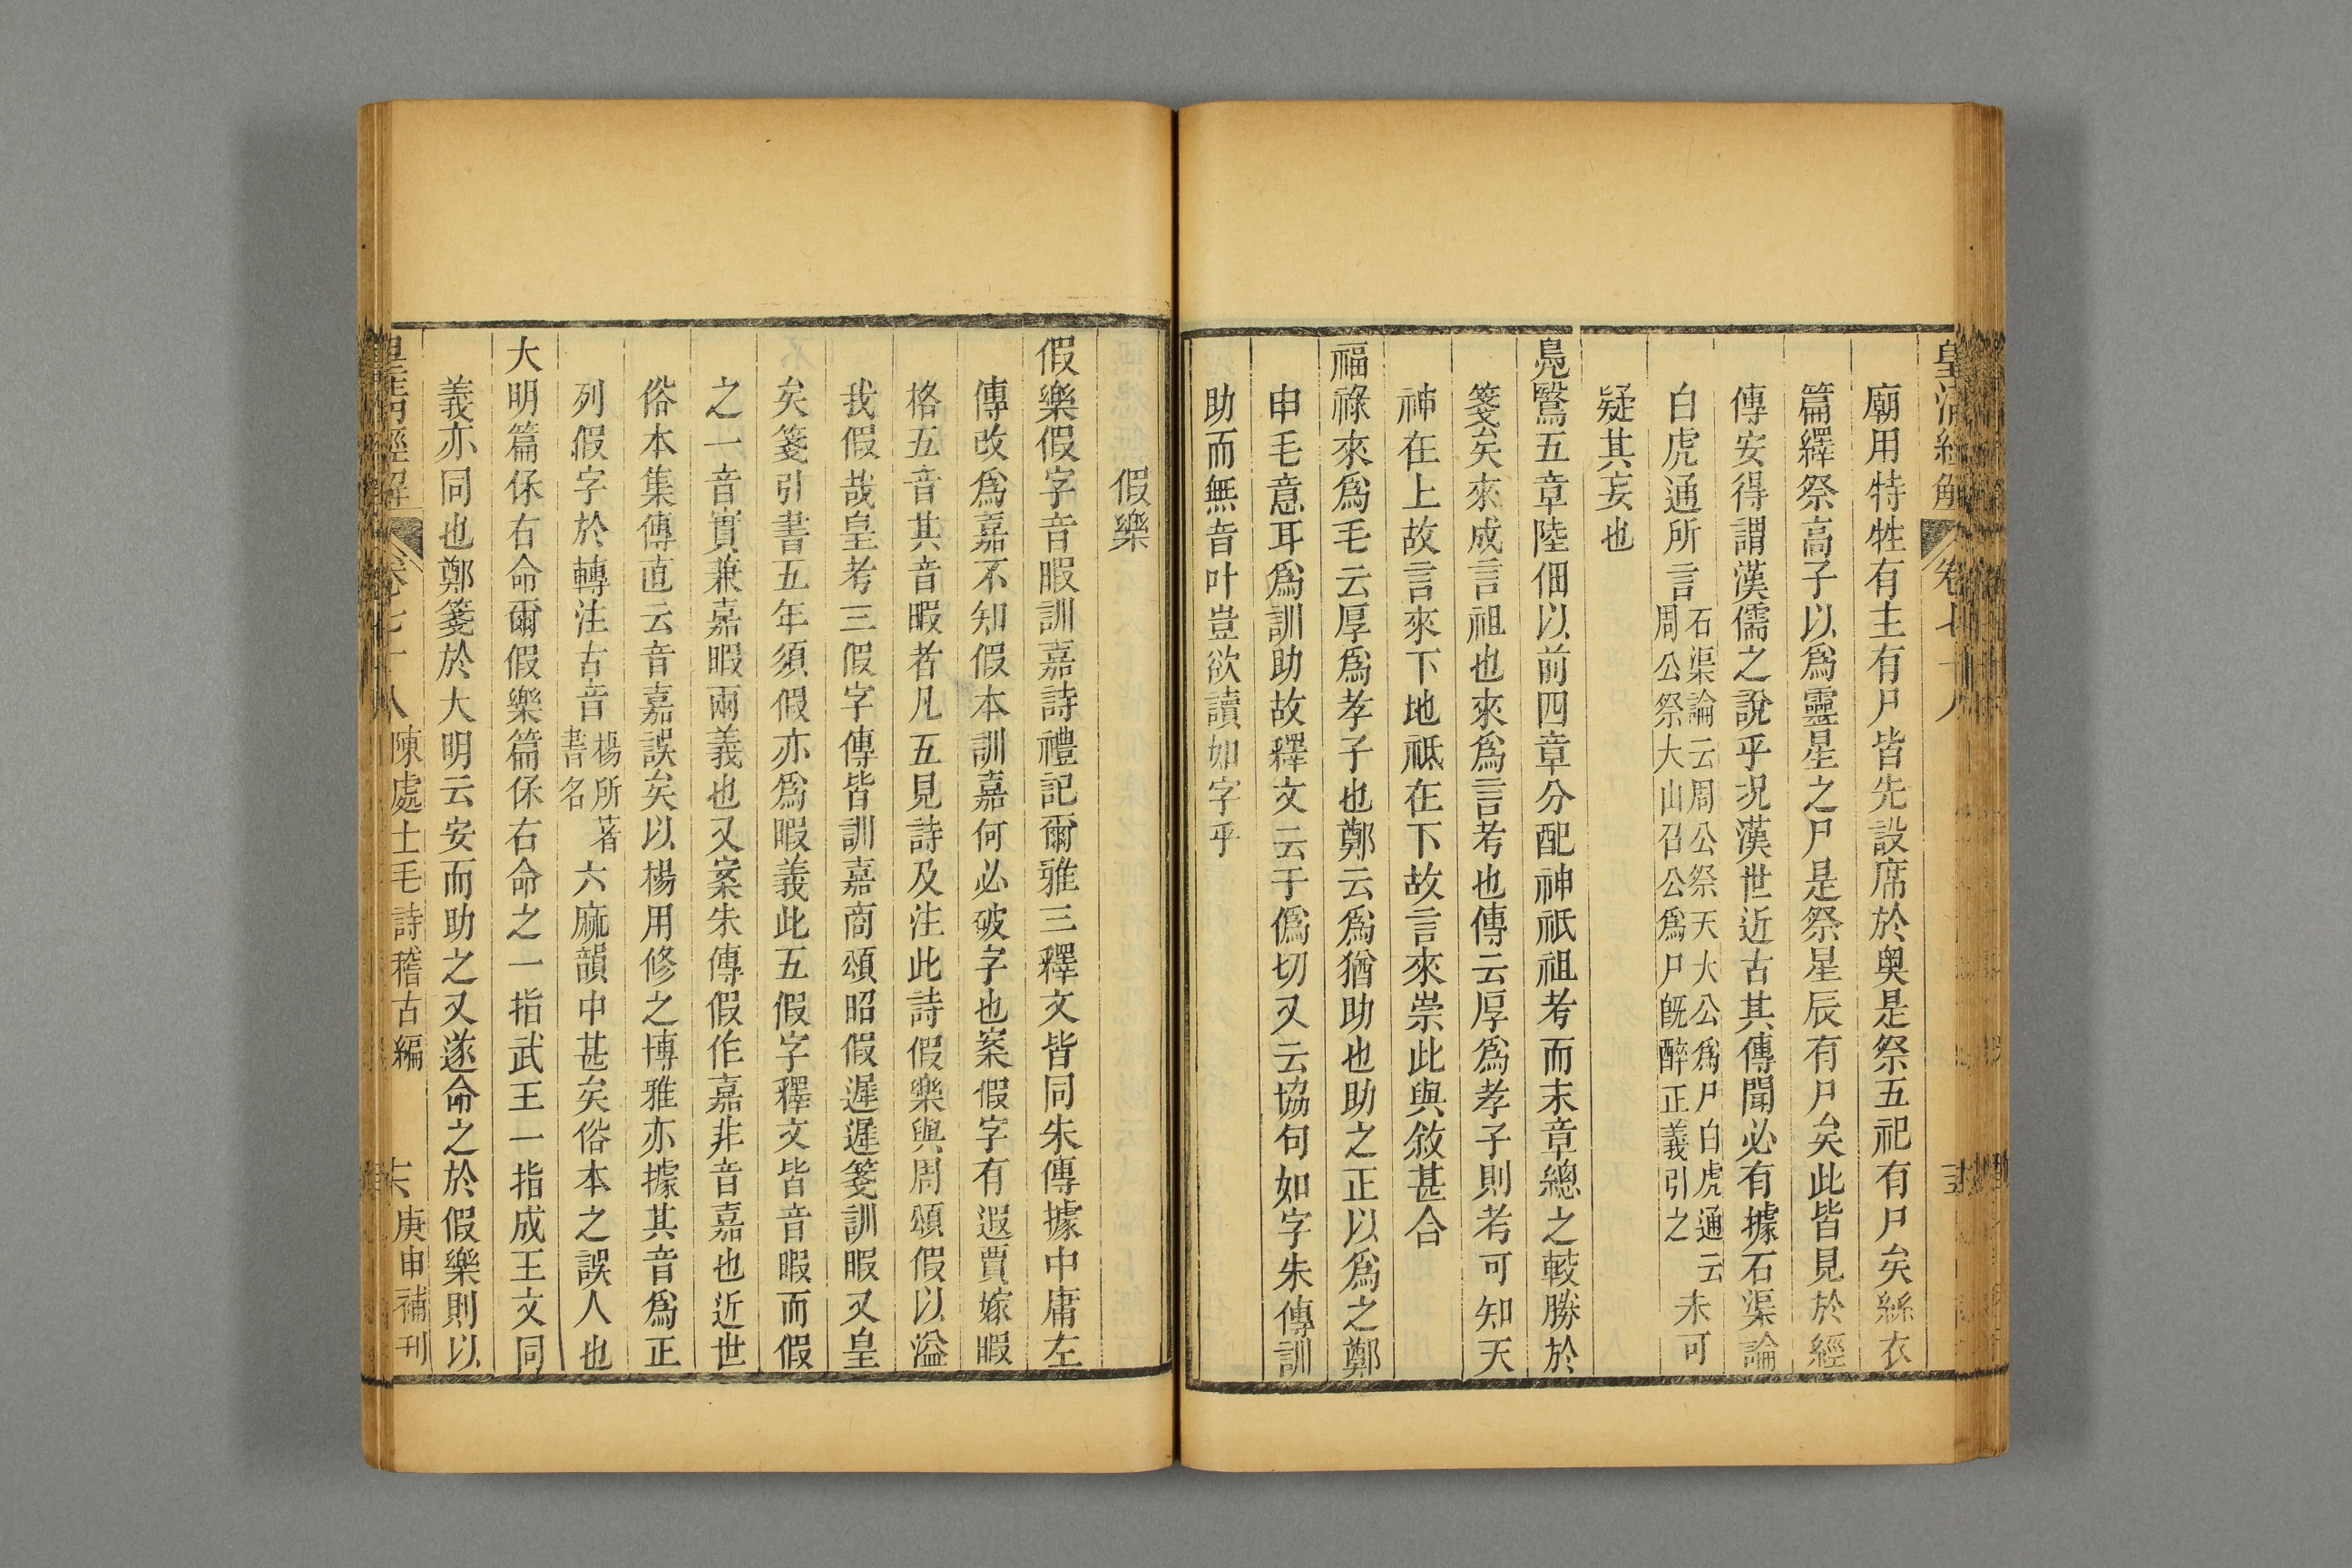 皇清經解 卷七十八
廟用特牲有主有尸皆先設席於奧是祭五祀有尸矣絲衣
篇繹祭高子以爲靈星之尸是祭星辰有尸矣此皆見於經
傳安得謂漢儒之說乎況漢世近古其傳聞必有據石渠論
白虎通所言石渠論云周公祭天大公爲尸白虎通云周公祭大山召公爲尸旣醉正義引之未可
疑其妄也
鳧鷖五章陸佃以前四章分配神祇祖考而末章總之較勝於
箋矣來成言祖也來爲言考也傳云厚爲孝子則考可知天
神在上故言來下地祗在下故言來崇此與敘甚合
福祿來爲毛云厚爲孝子也鄭云爲猶助也助之正以爲之鄭
申毛意耳爲訓助故釋文云于僞切又云協句如字朱傳訓
助而無音叶豈欲讀如字乎
假樂
假樂假字音暇訓嘉詩禮記爾雅三釋文皆同朱傳據中庸左
傳改爲嘉不知假本訓嘉何必破字也案假字有遐賈嫁暇
格五音其音暇者凡五見詩及注此詩假樂與周頌假以溢
我假哉皇考三假字傳皆訓嘉商頌昭假遲遲箋訓暇又皇
矣箋引書五年須假亦爲暇義此五假字釋文皆音暇而假
之一音實兼嘉暇兩義也又案朱傳假作嘉非音嘉也近世
俗本集傳直云音嘉誤矣以楊用修之博雅亦據其音爲正
列假字於轉注古音楊所著書名六麻韻中甚矣俗本之誤人也
大明篇保右命爾假樂篇保右命之一指武王一指成王文同
義亦同也鄭箋於大明云安而助之又遂命之於假樂則以
皇淸經解 卷七十八 陳處士毛詩稽古編 庚申補刊